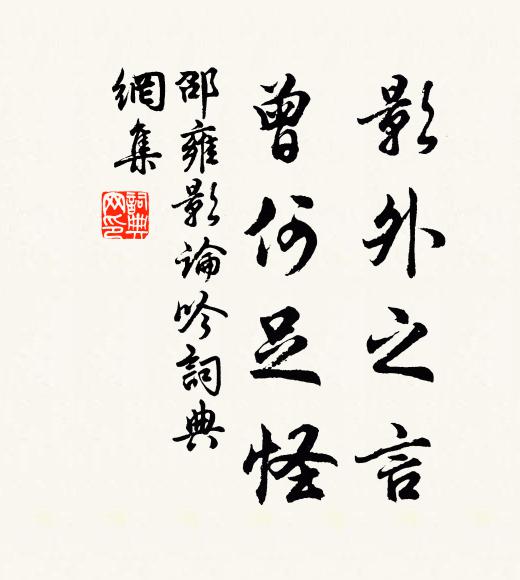 影外之言
曾何足怪
邵雍影論吟詞典
網集
詞典
网印